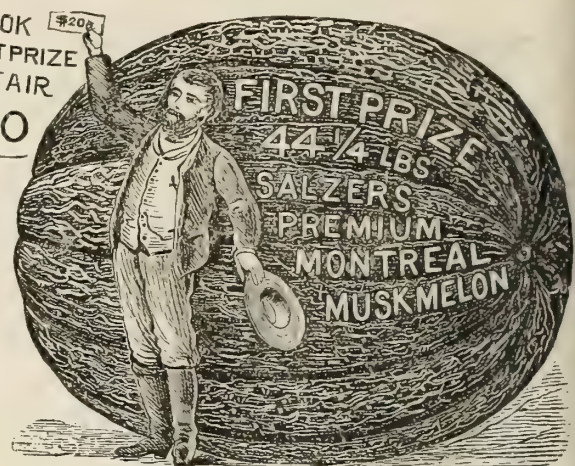 OK
$20.
TPRIZE
FAIR
0
FIRST PRIZE
44 1/4 LBS
SALZERS
PREMIUM
MONTREAL
MUSKMELON